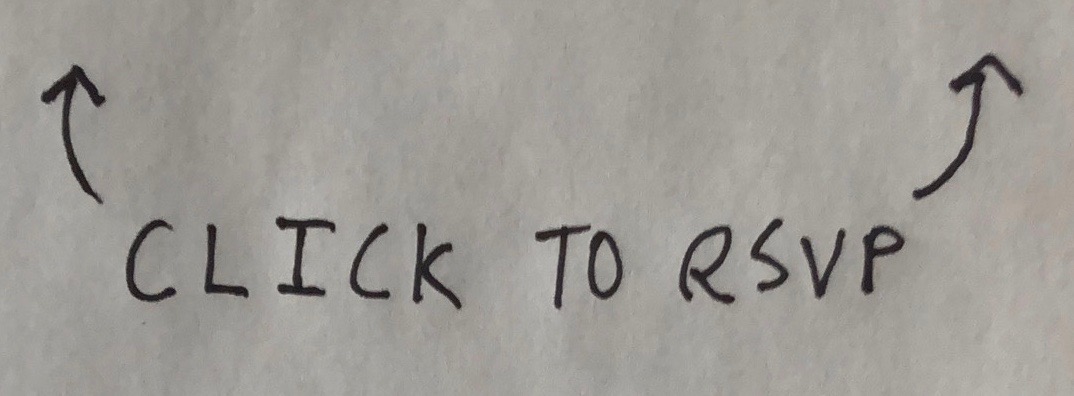 CLICK TO RSVP